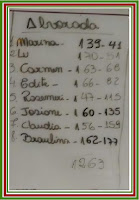 Alvorada
1 Marina - 139-41
2 Lu 170-51
3 Carmen - 163-68
4 Edite - 166-82
5 Rosemeri - 147-113
6 Josiane - 160-135
7 Claudia - 156-159
8 Braulina - 162-177
1263